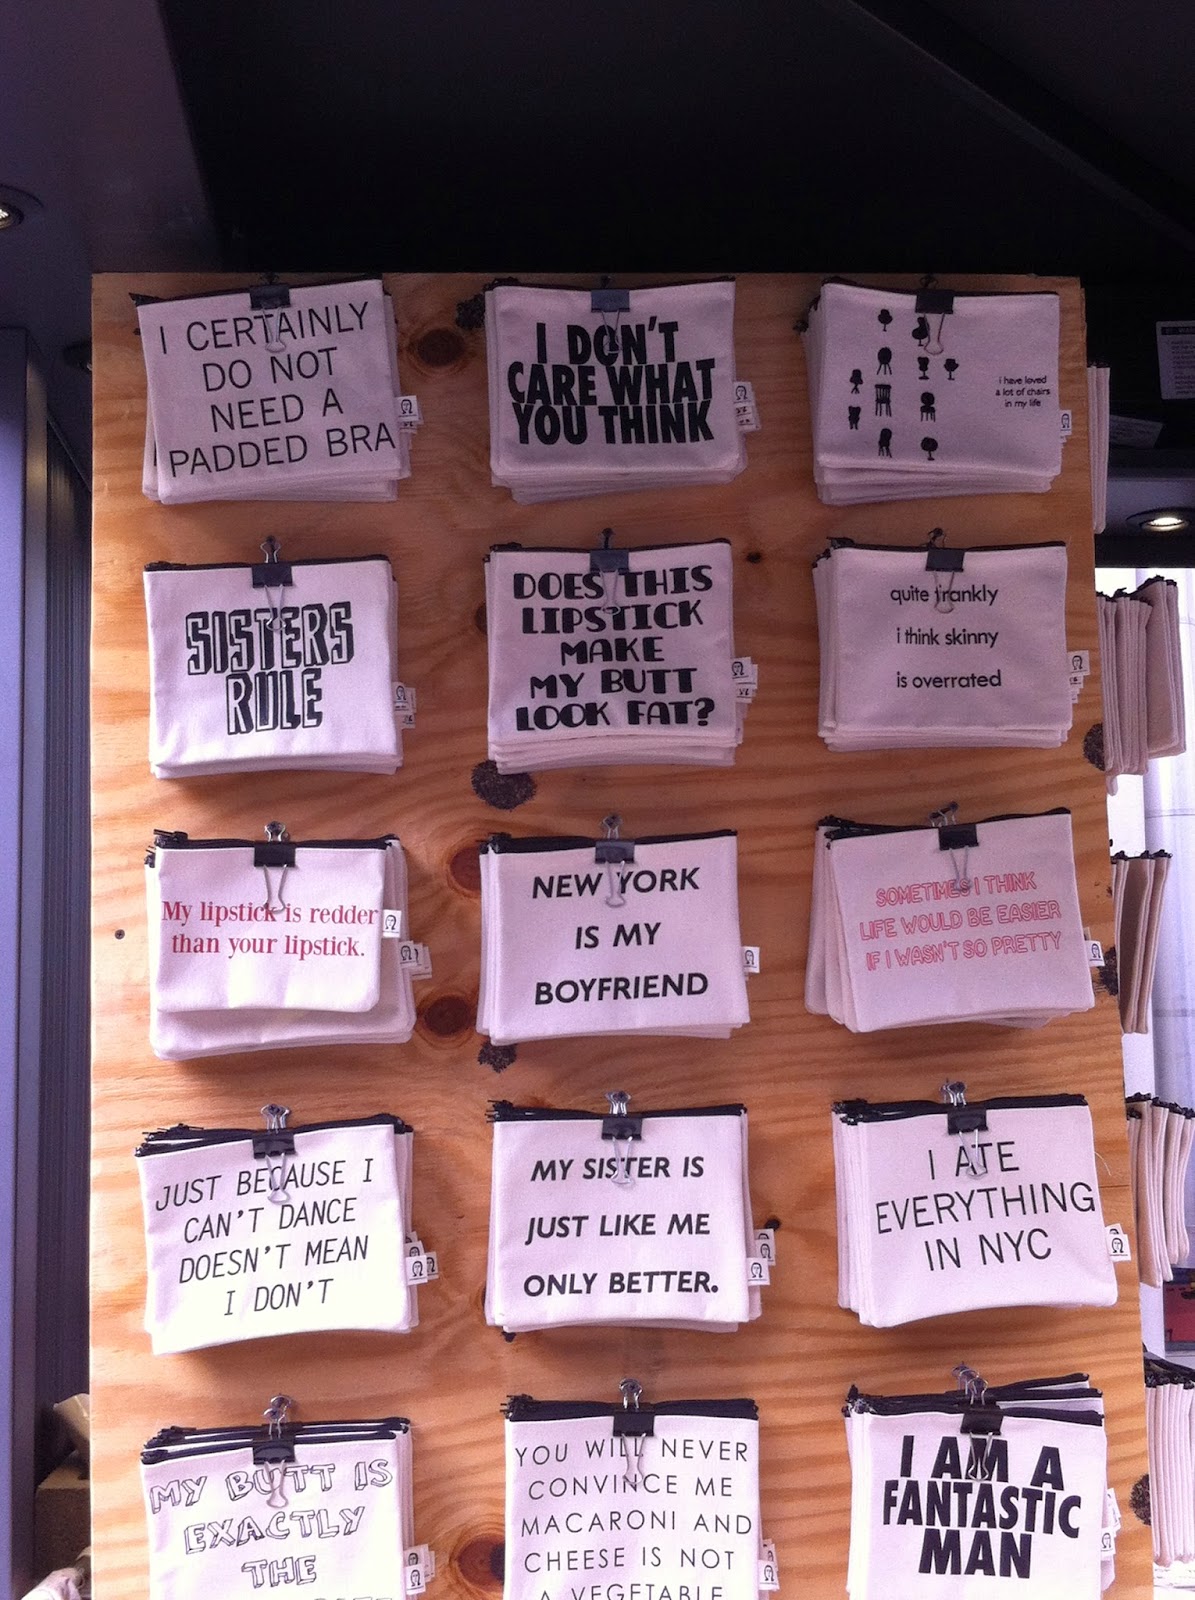 I CERTAINLY
DO NOT
NEED A
PADDED BRA
I DON'T
CARE WHAT
YOU THINK
i have loved
a lot of chairs
in my life
SISTERS
RULE
DOES THIS
LIPSTICK
MAKE
MY BUTT
LOOK FAT?
quite frankly
i think skinny
is overrated
My lipstick is redder
than your lipstick.
NEW YORK
IS MY
BOYFRIEND
SOMETIMES I THINK
LIFE WOULD BE EASIER
IF I WASN'T SO PRETTY
JUST BECAUSE I
CAN'T DANCE
DOESN'T MEAN
I DON'T
MY SISTER IS
JUST LIKE ME
ONLY BETTER.
I ATE
EVERYTHING
IN NYC
MY BUTT IS
EXACTLY
THE
YOU WILL NEVER
CONVINCE ME
MACARONI AND
CHEESE IS NOT
A VEGETABLE
I AM A
FANTASTIC
MAN